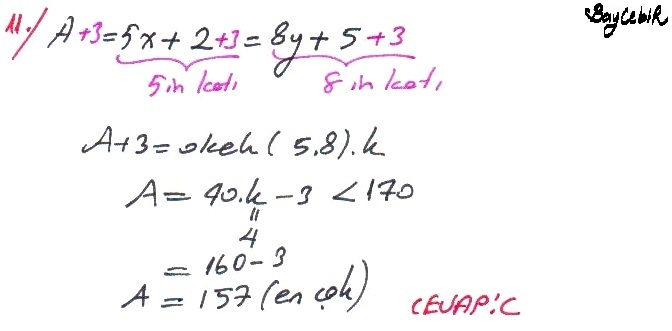 BayCebiR
11.) A+3=5x+2+3=8y+5+3
5in katı 8in katı
A+3=okek(5,8).k
A=40.k-3<170
"
4
=160-3
A=157(en çok)
CEVAP:C